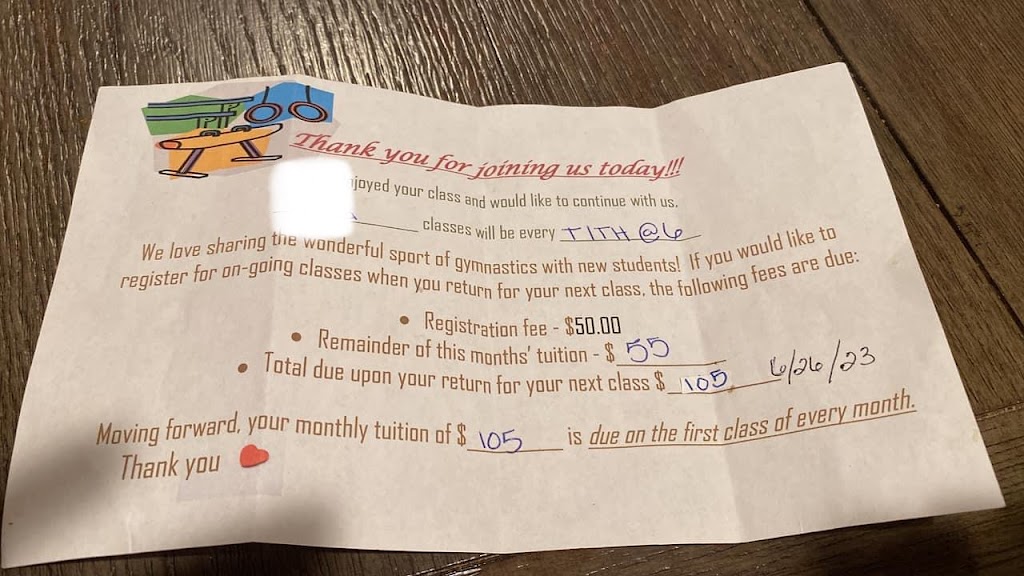 Thank you for joining us today!!!
joyed your class and would like to continue with us.
classes will be every T/TH @ 6
We love sharing the wonderful sport of gymnastics with new students! If you would like to
register for on-going classes when you return for your next class, the following fees are due:
• Registration fee - $50.00
• Remainder of this months' tuition - $ 55
• Total due upon your return for your next class $ 105 6/26/23
Moving forward, your monthly tuition of $ 105 is due on the first class of every month.
Thank you